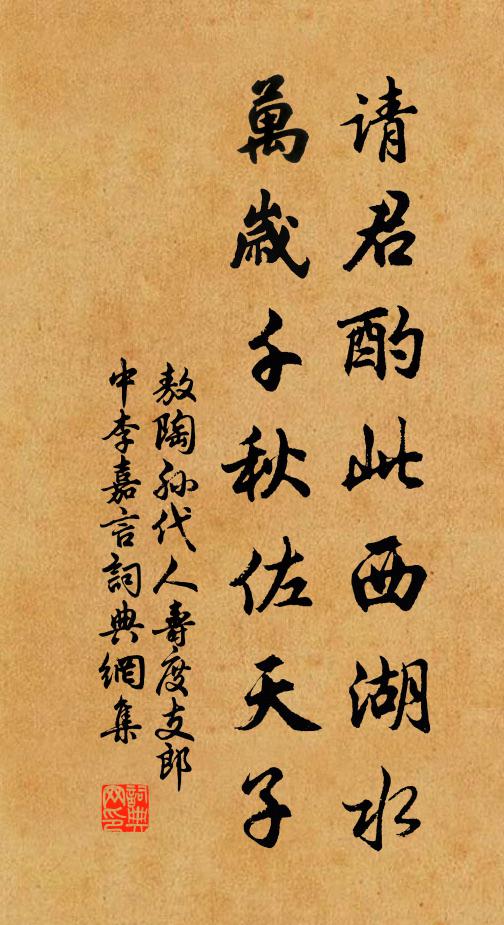 请君酌此西湖水
萬歲千秋佐天子
敖陶孙代人壽度支郎
中李嘉言詞典網集
詞典
网印